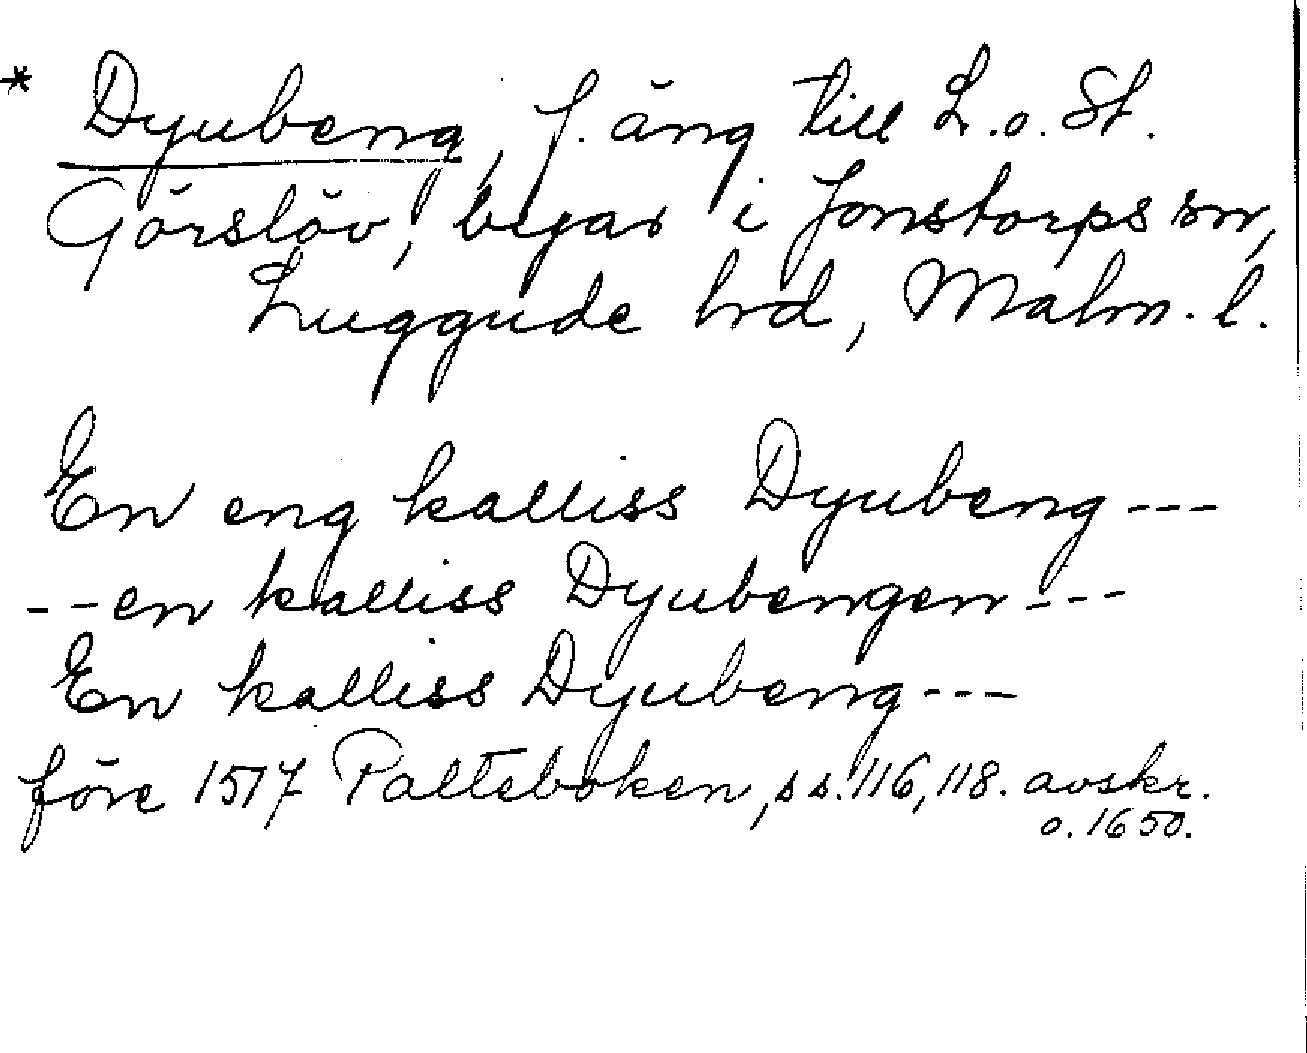 * Dyubeng, f. äng till L. o. St.
Görslöv, byar i Jonstorps sn,
Luggude hd, Malm. l.
En eng kalliss Dyubeng ---
-- en kalliss Dyubengen ---
En kalliss Dyubeng ---
före 1517 Palteboken, ss. 116, 118. avskr.
o. 1650.